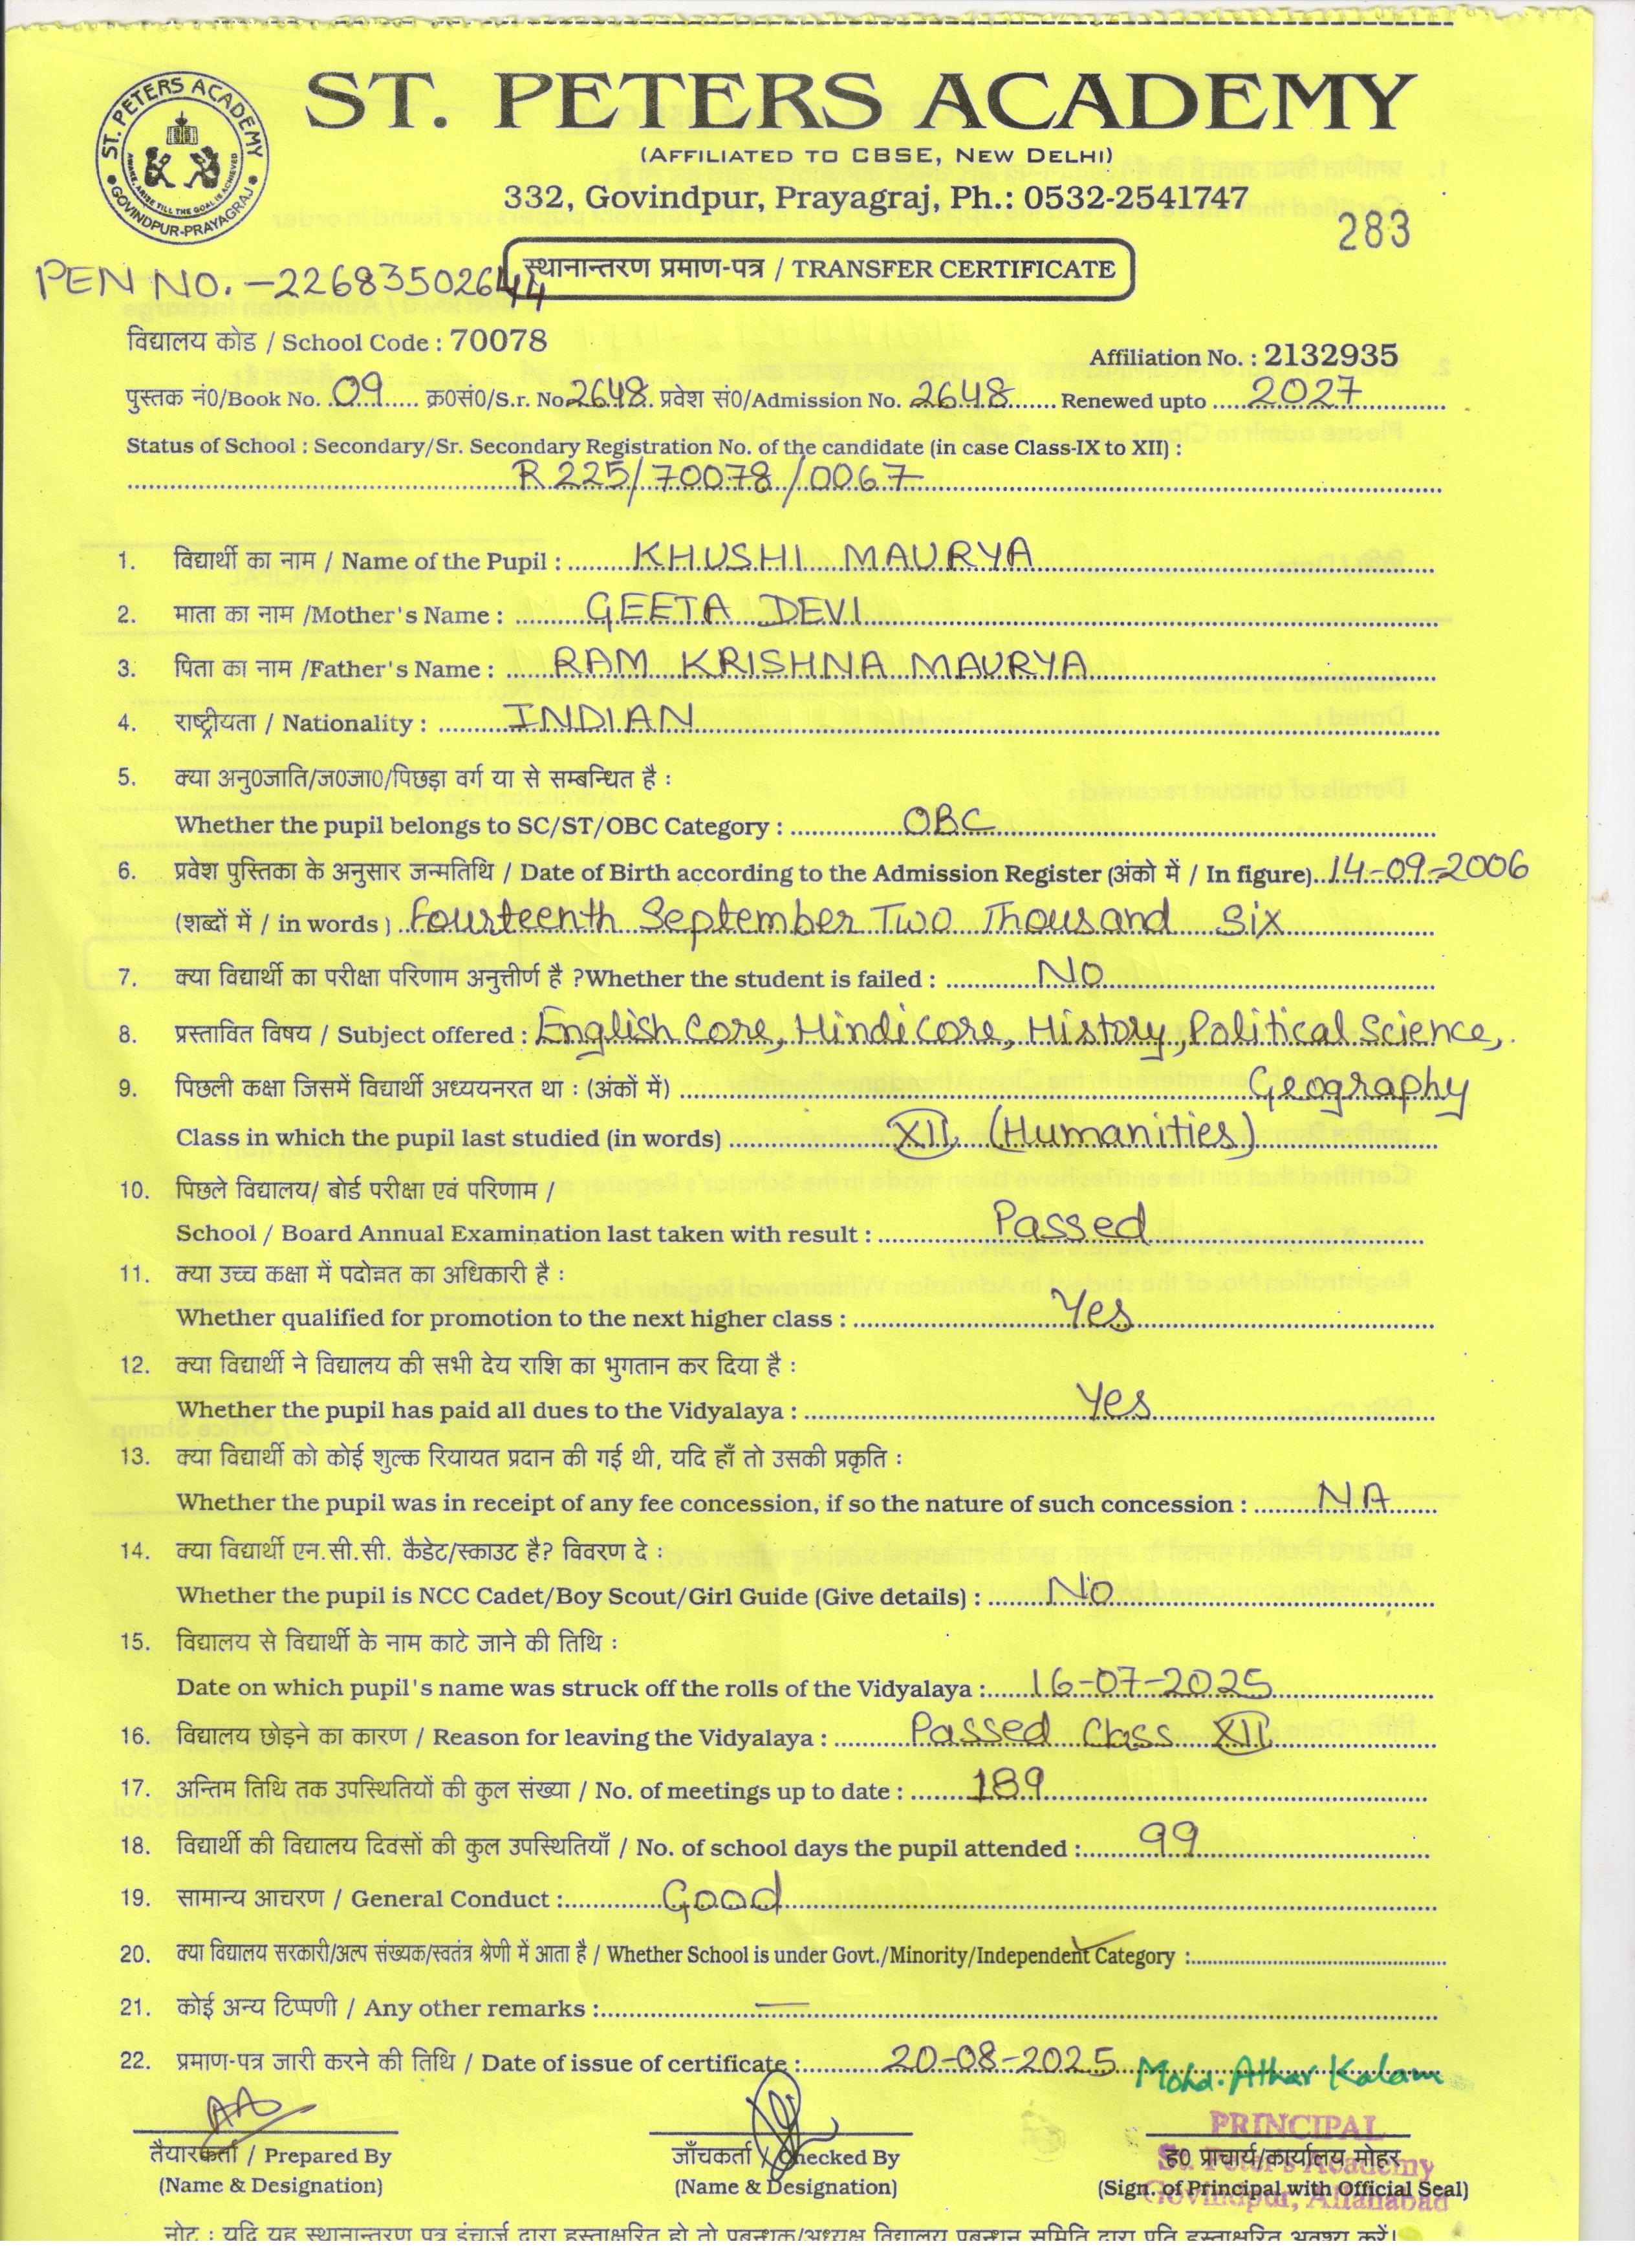 ST. PETERS ACADEMY
(AFFILIATED TO CBSE, NEW DELHI)
332, Govindpur, Prayagraj, Ph.: 0532-2541747
ST. PETERS ACADEMY
AWAKE, ARISE TILL THE GOAL IS ACHIEVED
GOVINDPUR-PRAYAGRAJ
283
स्थानान्तरण प्रमाण-पत्र / TRANSFER CERTIFICATE
PEN NO. - 22683502644
विद्यालय कोड / School Code : 70078
Affiliation No. : 2132935
पुस्तक नं0/Book No. 09 क्र0सं0/S.r. No 2648 प्रवेश सं0/Admission No. 2648 Renewed upto 2027
Status of School : Secondary/Sr. Secondary Registration No. of the candidate (in case Class-IX to XII) :
R 225/70078/0067
1. विद्यार्थी का नाम / Name of the Pupil : KHUSHI MAURYA
2. माता का नाम /Mother's Name : GEETA DEVI
3. पिता का नाम /Father's Name : RAM KRISHNA MAURYA
4. राष्ट्रीयता / Nationality : INDIAN
5. क्या अनु0जाति/ज0जा0/पिछड़ा वर्ग या से सम्बन्धित है :
Whether the pupil belongs to SC/ST/OBC Category : OBC
6. प्रवेश पुस्तिका के अनुसार जन्मतिथि / Date of Birth according to the Admission Register (अंको में / In figure) 14-09-2006
(शब्दों में / in words ) Fourteenth September Two Thousand Six
7. क्या विद्यार्थी का परीक्षा परिणाम अनुत्तीर्ण है ?Whether the student is failed : NO
8. प्रस्तावित विषय / Subject offered : English Core, Hindi Core, History, Political Science,
9. पिछली कक्षा जिसमें विद्यार्थी अध्ययनरत था : (अंकों में) Geography
Class in which the pupil last studied (in words) XII (Humanities)
10. पिछले विद्यालय/ बोर्ड परीक्षा एवं परिणाम /
School / Board Annual Examination last taken with result : Passed
11. क्या उच्च कक्षा में पदोन्नत का अधिकारी है :
Whether qualified for promotion to the next higher class : Yes
12. क्या विद्यार्थी ने विद्यालय की सभी देय राशि का भुगतान कर दिया है :
Whether the pupil has paid all dues to the Vidyalaya : Yes
13. क्या विद्यार्थी को कोई शुल्क रियायत प्रदान की गई थी, यदि हाँ तो उसकी प्रकृति :
Whether the pupil was in receipt of any fee concession, if so the nature of such concession : NA
14. क्या विद्यार्थी एन.सी.सी. कैडेट/स्काउट है? विवरण दे :
Whether the pupil is NCC Cadet/Boy Scout/Girl Guide (Give details) : No
15. विद्यालय से विद्यार्थी के नाम काटे जाने की तिथि :
Date on which pupil's name was struck off the rolls of the Vidyalaya : 16-07-2025
16. विद्यालय छोड़ने का कारण / Reason for leaving the Vidyalaya : Passed Class XII
17. अन्तिम तिथि तक उपस्थितियों की कुल संख्या / No. of meetings up to date : 189
18. विद्यार्थी की विद्यालय दिवसों की कुल उपस्थितियाँ / No. of school days the pupil attended : 99
19. सामान्य आचरण / General Conduct : Good
20. क्या विद्यालय सरकारी/अल्प संख्यक/स्वतंत्र श्रेणी में आता है / Whether School is under Govt./Minority/Independent Category :
21. कोई अन्य टिप्पणी / Any other remarks : —
22. प्रमाण-पत्र जारी करने की तिथि / Date of issue of certificate : 20-08-2025
Mohd. Athar Kalam
PRINCIPAL
St. Peter's Academy
Govindpur, Allahabad
तैयारकर्ता / Prepared By जाँचकर्ता / Checked By ह0 प्राचार्य/कार्यालय मोहर
(Name & Designation) (Name & Designation) (Sign. of Principal with Official Seal)
नोट : यदि यह स्थानान्तरण पत्र इंचार्ज द्वारा हस्ताक्षरित हो तो प्रबन्धक/अध्यक्ष विद्यालय प्रबन्धन समिति द्वारा प्रति हस्ताक्षरित अवश्य करें।